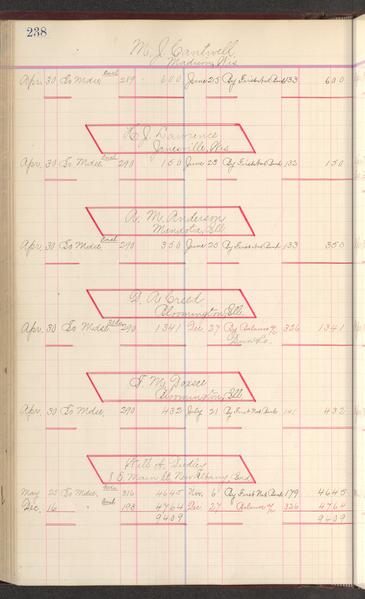 238
M. J. Cantwell
Madison, Wis
Apr. 30 To Mdse 289 600 June 25 By First Nat Bank 133 600
H. J. Lawrence
Janesville, Wis
Apr. 30 To Mdse 290 150 June 25 By First Nat Bank 133 150
A. M. Anderson
Mendota, Ill.
Apr. 30 To Mdse 290 350 June 25 By First Nat Bank 133 350
G. A. Creed
Bloomington, Ill.
Apr. 30 To Mdse 290 1341 Dec. 27 By Balance % 326 1341
F. M.
Bloomington, Ill.
Apr. 30 To Mdse 290 432 July 21 By First Nat Bank 141 432
Will A. Seedley
Main St. New Albany, Ind
May 25 To Mdse. 316 4645 Nov. 6 By First Nat Bank 179 4645
Dec. 16 " 198 4764 Dec 27 " Balance % 326 4764
9409 9409